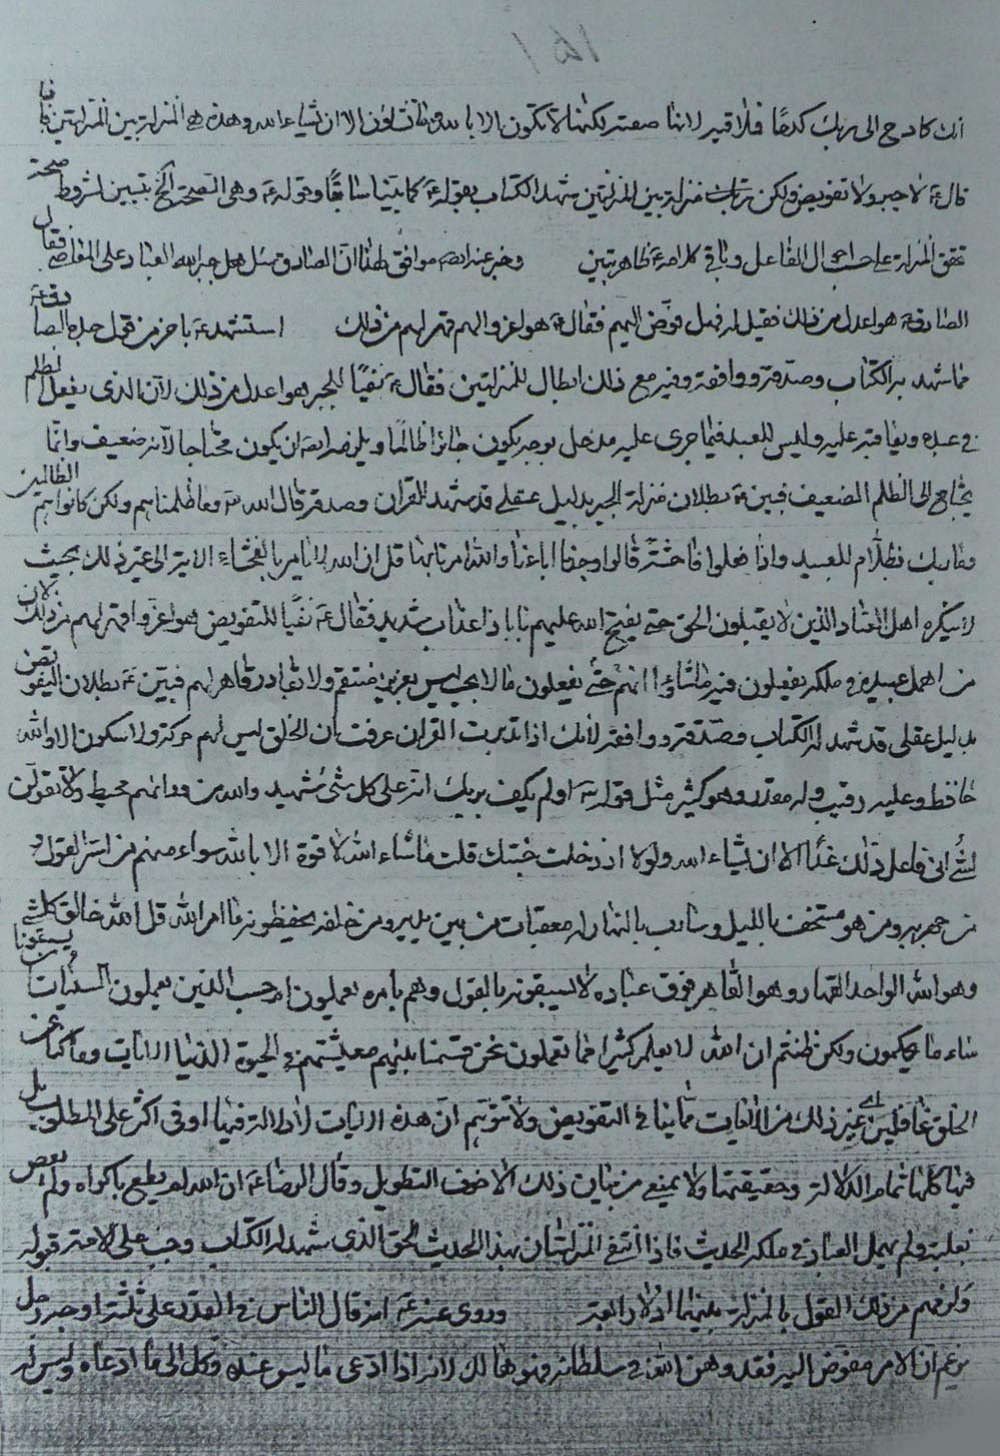 ١٥١
انك كادح الى ربك كدحا فلاقيه لانها صفته لكنها لا تكون الا بالله وما تشاؤن الا ان يشاء الله وهذه هي المنزلة بين المنزلتين
قال ع لا جبر ولا تفويض ولكن منزلة بين المنزلتين شهد الكتاب بقوله كما بيناه سابقا وقوله ع وهي الصحة الخ تبيين لشروط صحة
تحقق المنزلة على حسب احوال الفاعل وباقي كلامه ع ظاهر بين وخبر عنه ايضا موافق لهذا ان الصادق سئل هل جبر الله العباد على المعاصي فقال
الصادق ع هو اعدل من ذلك فقيل له فهل فوض اليهم فقال ع هو اعز واقهر لهم من ذلك استشهد ع باخر من قول جده الصادق ع
مما شهد به الكتاب وصدقه ووافقه وفيه مع ذلك ابطال للمنزلتين فقال ع نفيا للجبر هو اعدل من ذلك لان الذي يفعل الظلم
في عبده ويعاقبه عليه وليس للعبد فيما جرى عليه مدخل بوجه يكون جائرا ظالما ويلزمه ايضا ان يكون محتاجا لانه ضعيف وانما
يحتاج الى الظلم الضعيف فبين ع بطلان منزلة الجبر بدليل عقلي قد شهد له القران وصدقه قال الله تع وما ظلمناهم ولكن كانوا هم الظالمين
وما ربك بظلام للعبيد واذا فعلوا فاحشة قالوا وجدنا اباءنا والله امرنا بها قل ان الله لا يامر بالفحشاء الاية الى غير ذلك بحيث
لا ينكره اهل العناد الذين لا يقبلون الحق حتى يفتح الله عليهم بابا ذا عذاب شديد فقال ع نفيا للتفويض هو اعز واقهر لهم من ذلك لان
من اهمل عبيده في ملكه يفعلون فيه ما شاؤا انهم حتى يفعلون ما لا يحب ليس بعزيز منتقم ولا بقادر قاهر لهم فبين ع بطلان التفويض
بدليل عقلي قد شهد له الكتاب وصدقه ووافقه لانك اذا تدبرت القران عرفت ان الخلق ليس لهم حركة ولا سكون الا والله
حافظ وعليه رقيب وله مقدر وهو كثير مثل قوله تع اولم يكف بربك انه على كل شئ شهيد والله من ورائهم محيط ولا تقولن
لشئ اني فاعل ذلك غدا الا ان يشاء الله ولولا اذ دخلت جنتك قلت ما شاء الله لا قوة الا بالله سواء منهم من اسر القول و
من جهر به ومن هو مستخف بالليل وسارب بالنهار له معقبات من بين يديه ومن خلفه يحفظونه من امر الله قل الله خالق كل شئ
وهو الله الواحد القهار وهو القاهر فوق عباده لا يسبقونه بالقول وهم بامره يعملون ام حسب الذين يعملون السيئات ان يسبقونا
ساء ما يحكمون ولكن ظننتم ان الله لا يعلم كثيرا مما تعملون نحن قسمنا بينهم معيشتهم في الحيوة الدنيا الايات وما كنا عن
الخلق غافلين الى غير ذلك من الايات مما ينافي التفويض ولا تتوهم ان هذه الايات لا دلالة فيها او في اكثر على المطلوب بل
فيها كلها تمام الدلالة وحقيقتها ولا يمنعني من بيان ذلك الا خوف التطويل وقال الرضا ع ان الله لم يطع باكراه ولم يعص
بغلبة ولم يهمل العباد في ملكه الحديث فاذا انتفى المنزلتان بهذا الحديث الحق الذي شهد له الكتاب وجب على الامة قبوله
ولزمهم من ذلك القول بالمنزلة بينهما اذ لا رابعة وروى عنه ع انه قال الناس في القدر على ثلثة اوجه رجل
يزعم ان الامر مفوض اليه فقد وهن الله في سلطانه فهو هالك لانه اذا ادعى ما ليس عنده وكل الى ما ادعاه وليس له